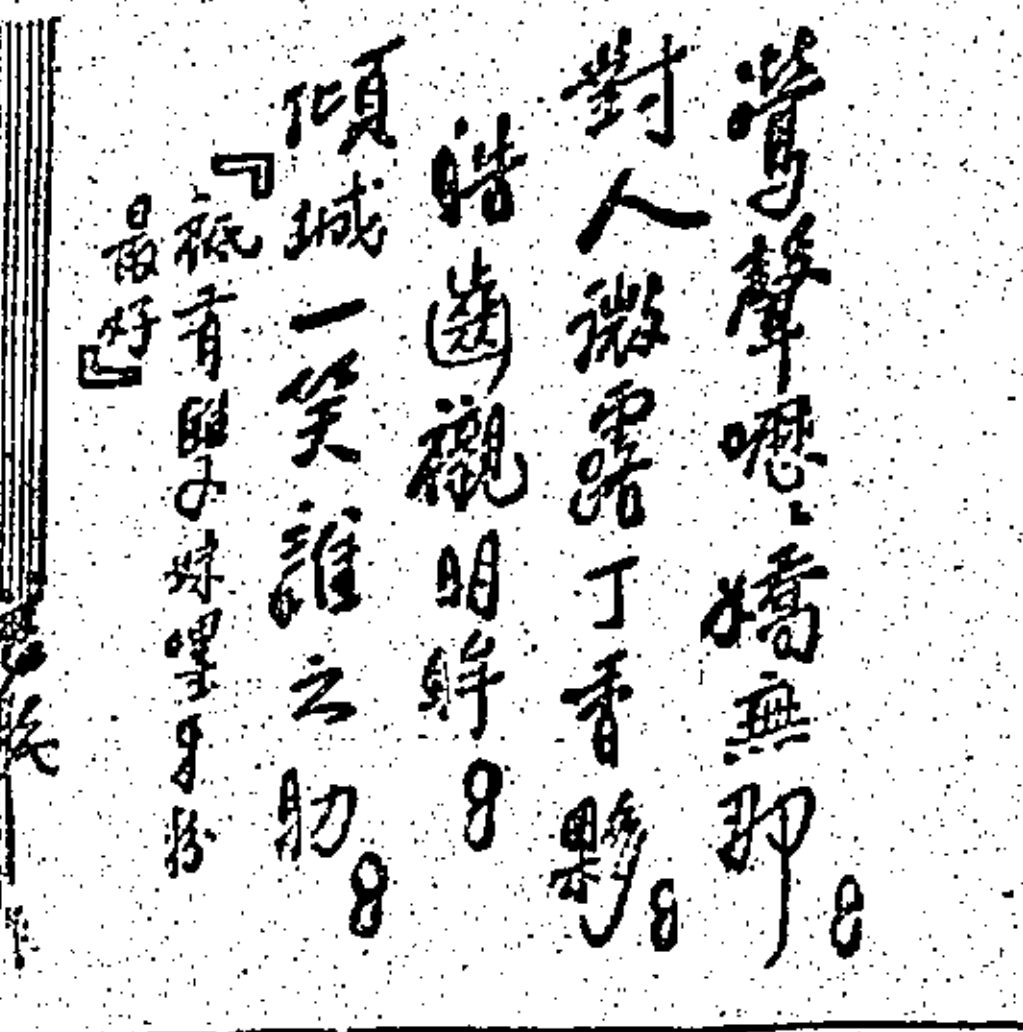 鶯聲嚦〻嬌無那
對人微露丁香顆
皓齒襯明眸
傾城一笑誰之助
『祗有雙妹嚜牙粉
最好』